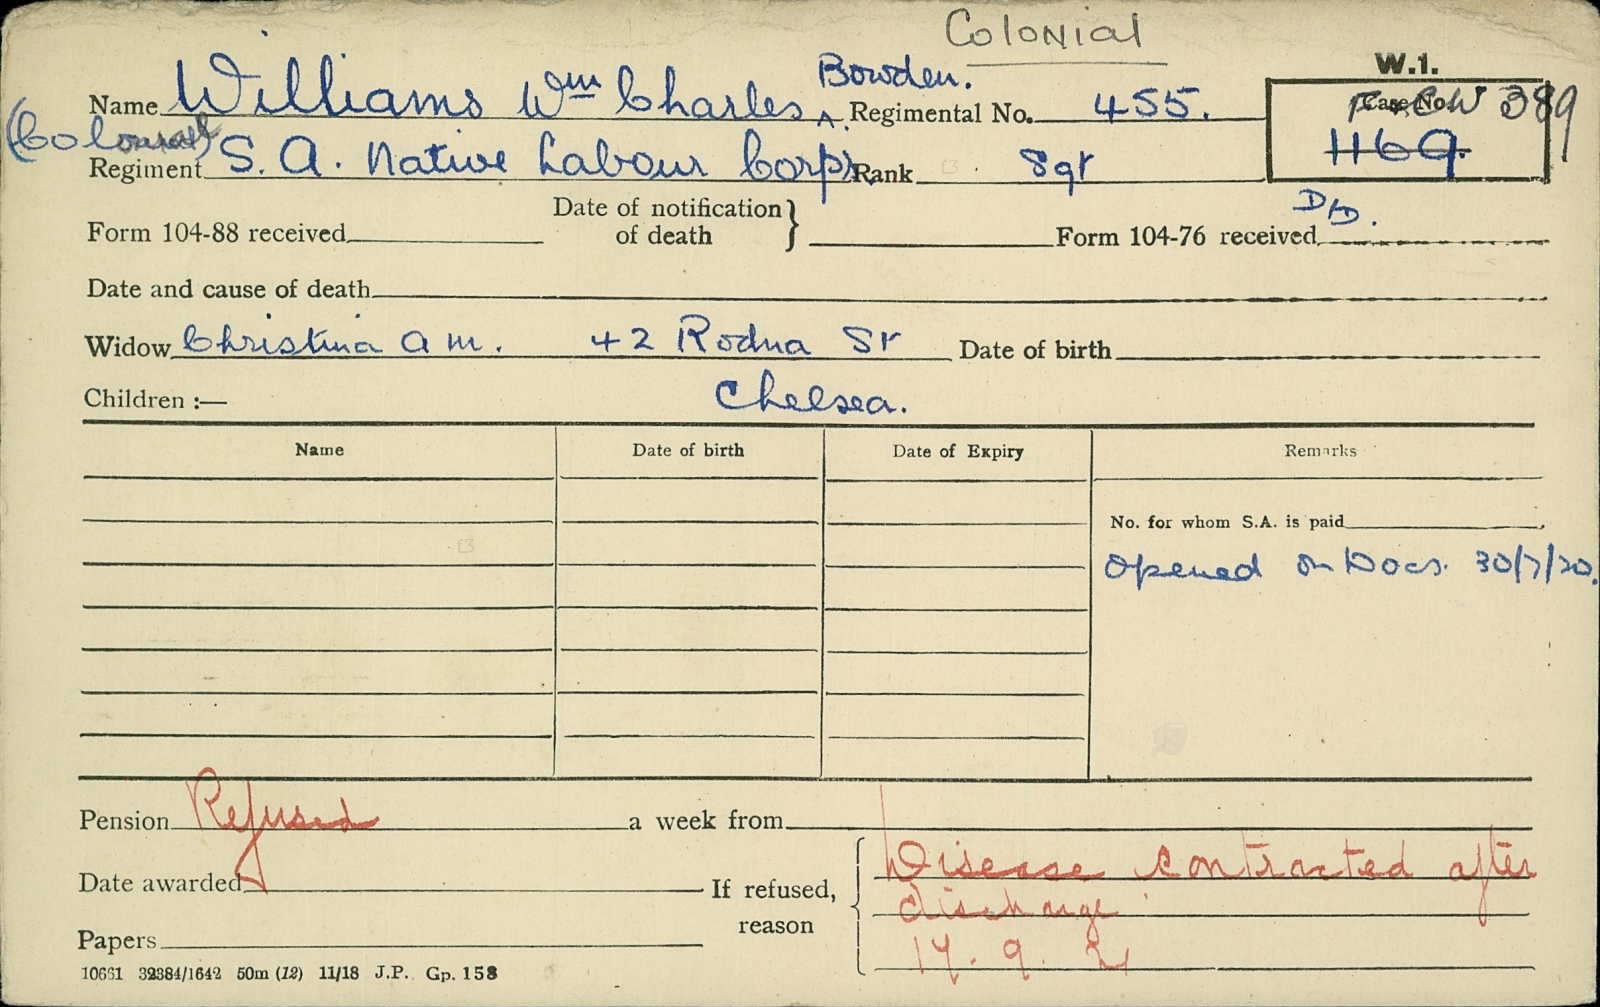 Colonial
W.1.
Name Williams Wm Charles Bowden. A. Regimental No. 455.
Case No. 389
1169.
(Coloured)
Regiment S. A. Native Labour Corps Rank Sgt
Form 104-88 received Date of notification of death } Form 104-76 received DD.
Date and cause of death
Widow Christina A M. 42 Rodna St Date of birth
Children :— Chelsea.
Name Date of birth Date of Expiry Remarks
No. for whom S.A. is paid
Opened on Docs. 30/7/20.
Pension Refused a week from
Date awarded If refused, reason { Disease contracted after
discharge
17. 9. 21
Papers
10661 32384/1642 50m (12) 11/18 J.P. Gp. 158